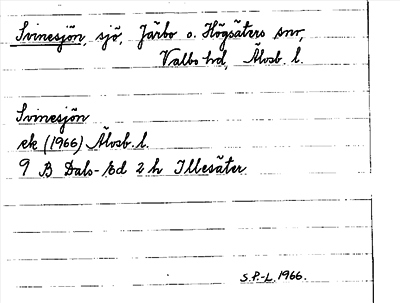 Svinesjön, sjö, Järbo o. Högsäters snr,
Valbo hd, Älvsb. l.
Svinesjön
ek (1966) Älvsb. l.
9 B Dals-Ed 2 h Illesäter
S.P.-L. 1966.